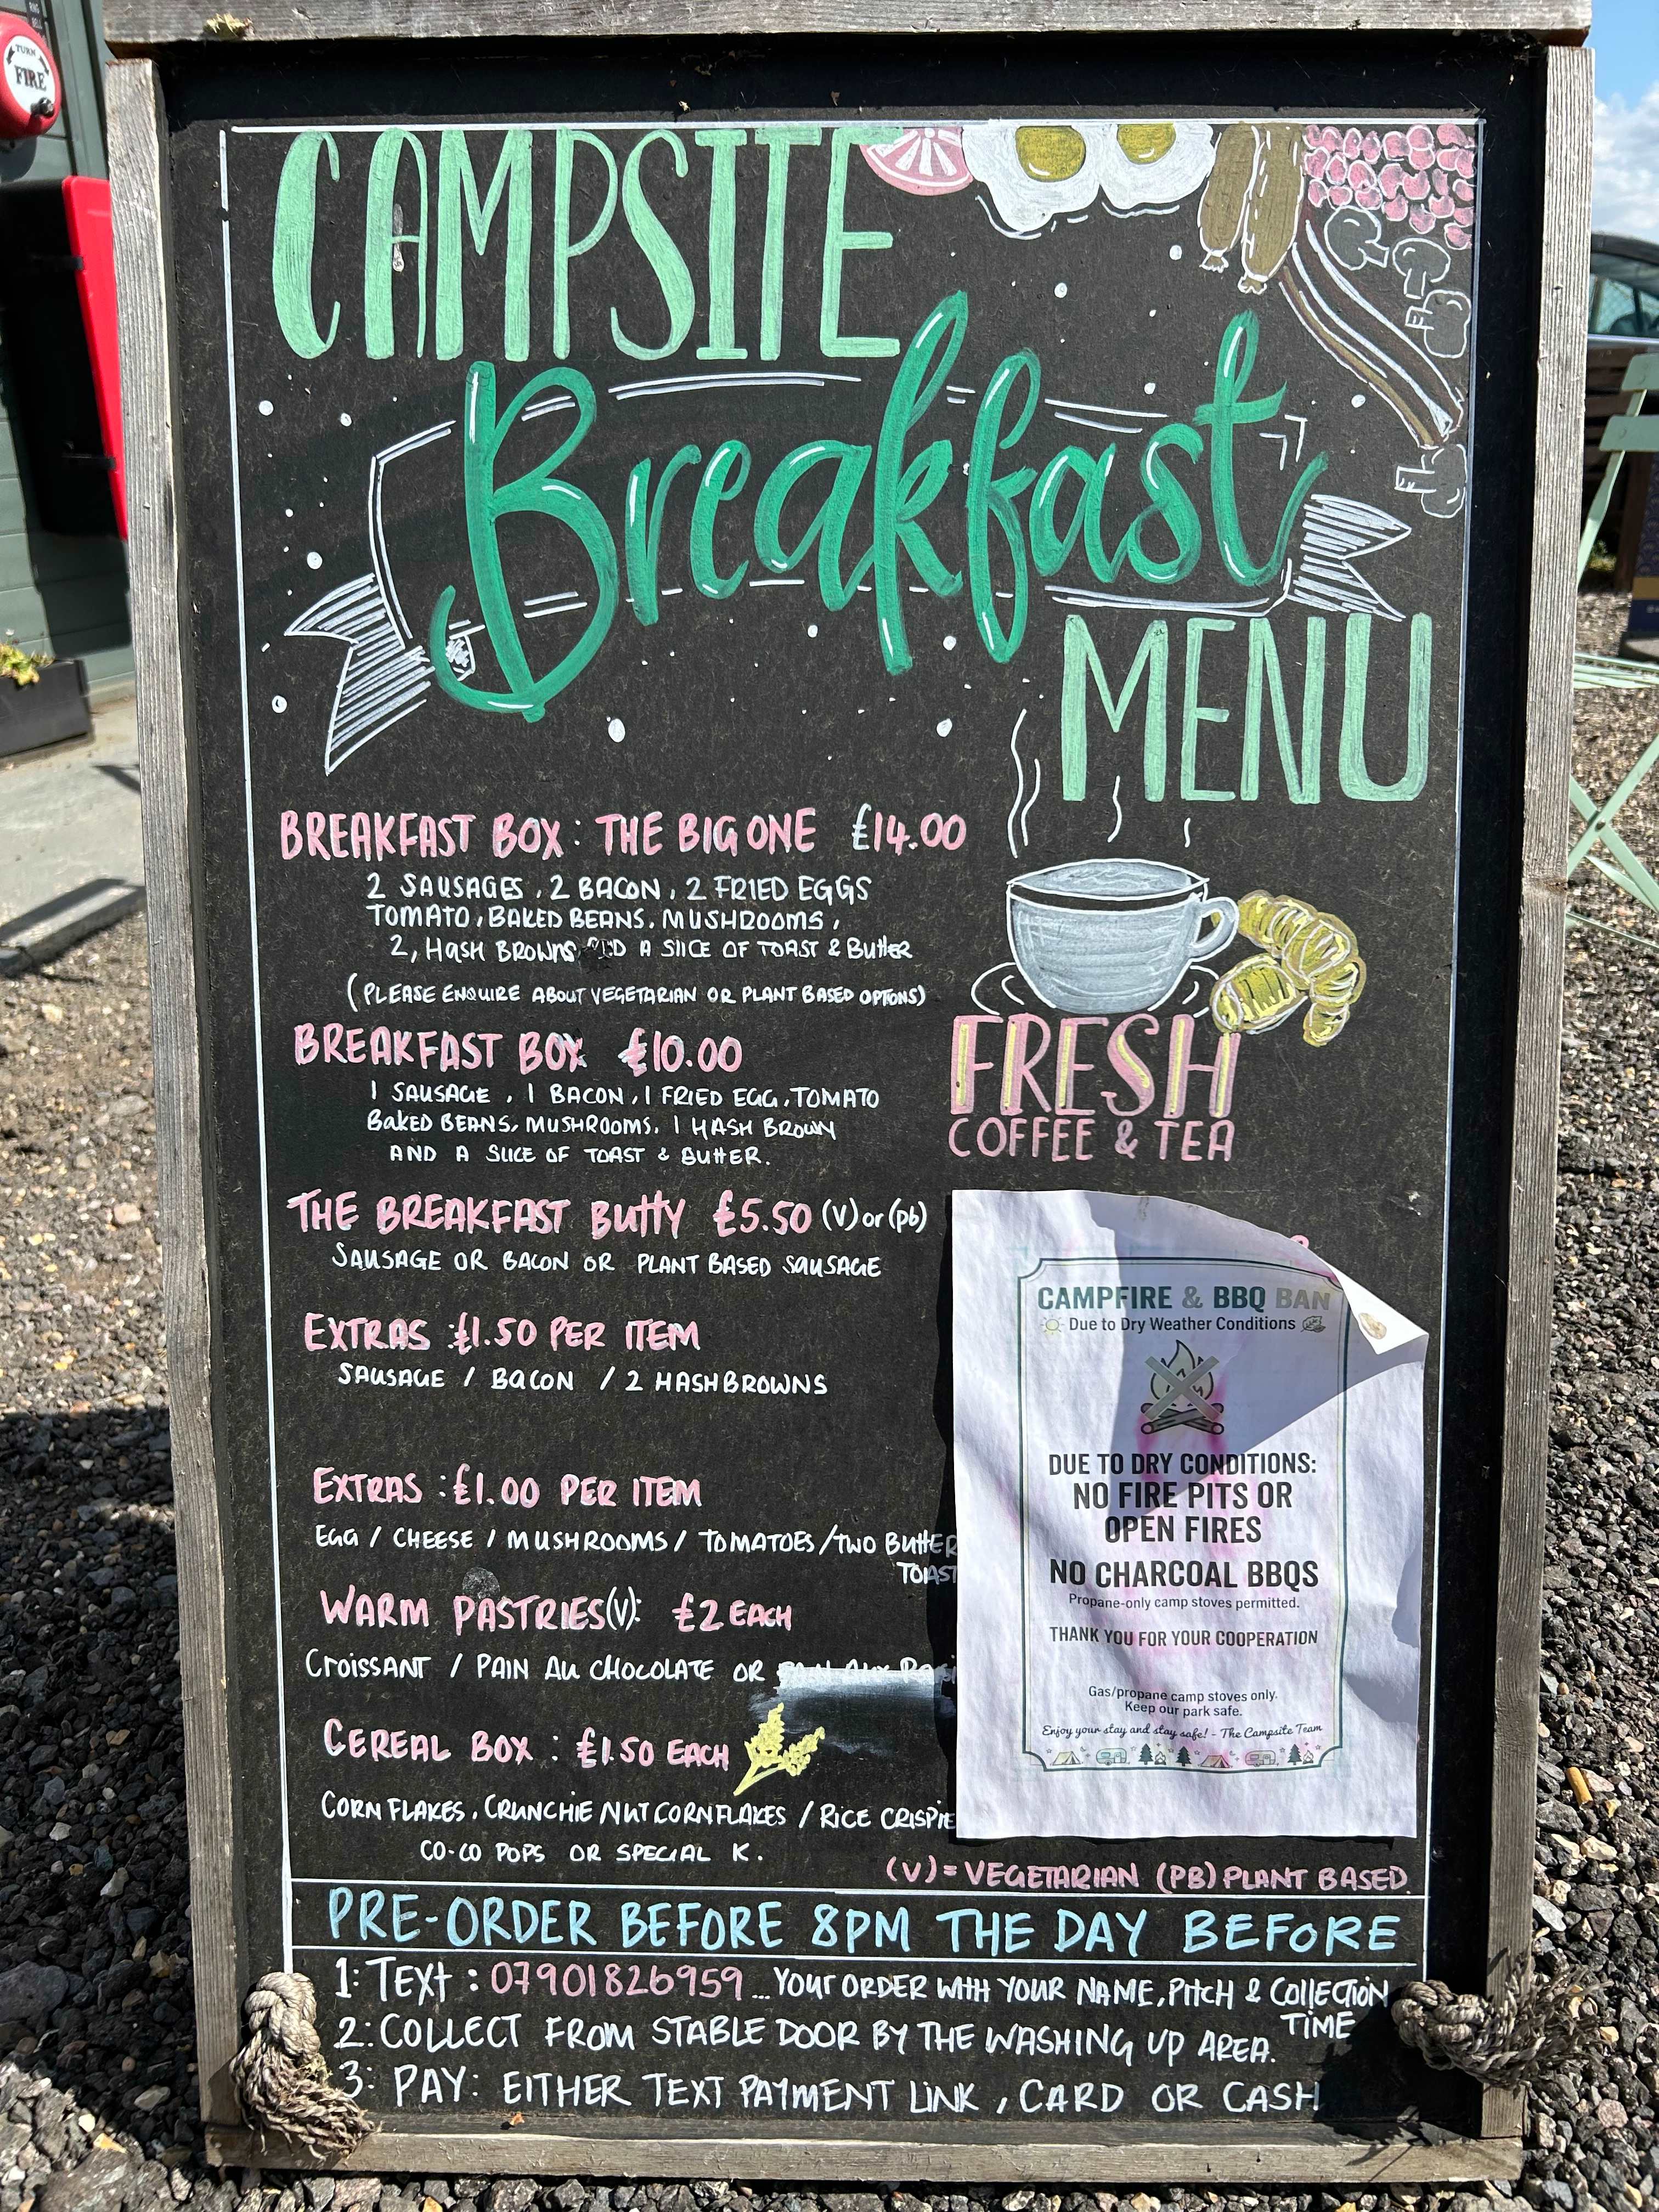 TURN
FIRE
CAMPSITE
Breakfast
MENU
BREAKFAST BOX: THE BIG ONE £14.00
2 SAUSAGES, 2 BACON, 2 FRIED EGGS
TOMATO, BAKED BEANS, MUSHROOMS,
2, HASH BROWNS AND A SLICE OF TOAST & BUTTER
(PLEASE ENQUIRE ABOUT VEGETARIAN OR PLANT BASED OPTIONS)
BREAKFAST BOX £10.00
1 SAUSAGE, 1 BACON, 1 FRIED EGG, TOMATO
BAKED BEANS, MUSHROOMS, 1 HASH BROWN
AND A SLICE OF TOAST & BUTTER.
FRESH
COFFEE & TEA
THE BREAKFAST BUTTY £5.50 (V) or (pb)
SAUSAGE OR BACON OR PLANT BASED SAUSAGE
EXTRAS : £1.50 PER ITEM
SAUSAGE / BACON / 2 HASHBROWNS
EXTRAS : £1.00 PER ITEM
EGG / CHEESE / MUSHROOMS / TOMATOES / TWO BUTTER
TOAST
WARM PASTRIES(V): £2 EACH
CROISSANT / PAIN AU CHOCOLATE OR
CEREAL BOX : £1.50 EACH
CORN FLAKES, CRUNCHIE NUT CORNFLAKES / RICE CRISPIE
CO-CO POPS OR SPECIAL K.
CAMPFIRE & BBQ BAN
Due to Dry Weather Conditions
DUE TO DRY CONDITIONS:
NO FIRE PITS OR
OPEN FIRES
NO CHARCOAL BBQS
Propane-only camp stoves permitted.
THANK YOU FOR YOUR COOPERATION
Gas/propane camp stoves only.
Keep our park safe.
Enjoy your stay and stay safe! - The Campsite Team
(V) = VEGETARIAN (PB) PLANT BASED.
PRE-ORDER BEFORE 8PM THE DAY BEFORE
1: TEXT : 07901826959 ... YOUR ORDER WITH YOUR NAME, PITCH & COLLECTION
TIME
2: COLLECT FROM STABLE DOOR BY THE WASHING UP AREA.
3: PAY: EITHER TEXT PAYMENT LINK, CARD OR CASH